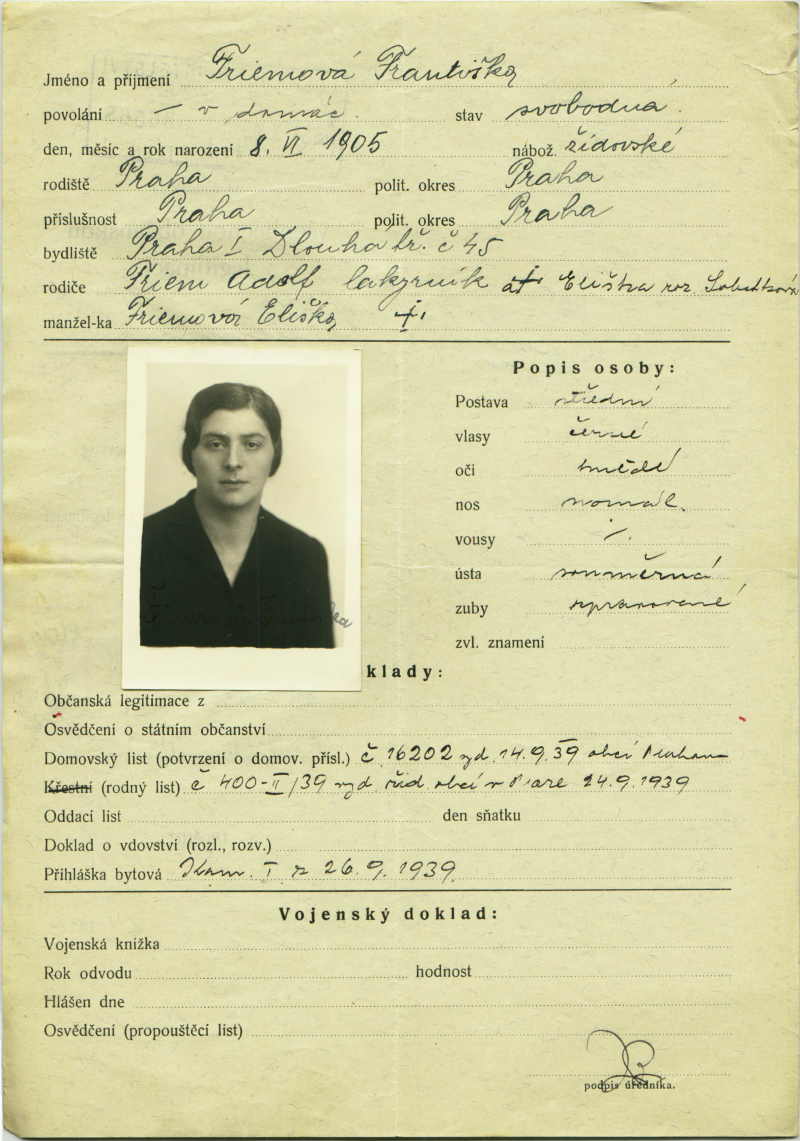 Jméno a příjmení Friemová Františka
povolání — v domác. stav svobodná.
den, měsíc a rok narození 8. VI 1905 nábož. židovské
rodiště Praha polit. okres Praha
příslušnost Praha polit. okres Praha
bydliště Praha I Dlouhá tř. č 45
rodiče Friem Adolf lakyrník a Eliška roz.
manžel-ka Friemová Eliška
Popis osoby:
Postava střední
vlasy černé
oči hnědé
nos normál.
vousy
ústa souměrná
zuby
zvl. znamení
klady:
Občanská legitimace z
Osvědčení o státním občanství
Domovský list (potvrzení o domov. přísl.) č 16202 vyd. 14.9.39 obcí
Křestní (rodný list) č 400-II/39 vyd žid. obcí v 24.9.1939
Oddací list den sňatku
Doklad o vdovství (rozl., rozv.)
Přihláška bytová Kom. I z 26.9.1939
Vojenský doklad:
Vojenská knížka
Rok odvodu hodnost
Hlášen dne
Osvědčení (propouštěcí list)
podpis úředníka.